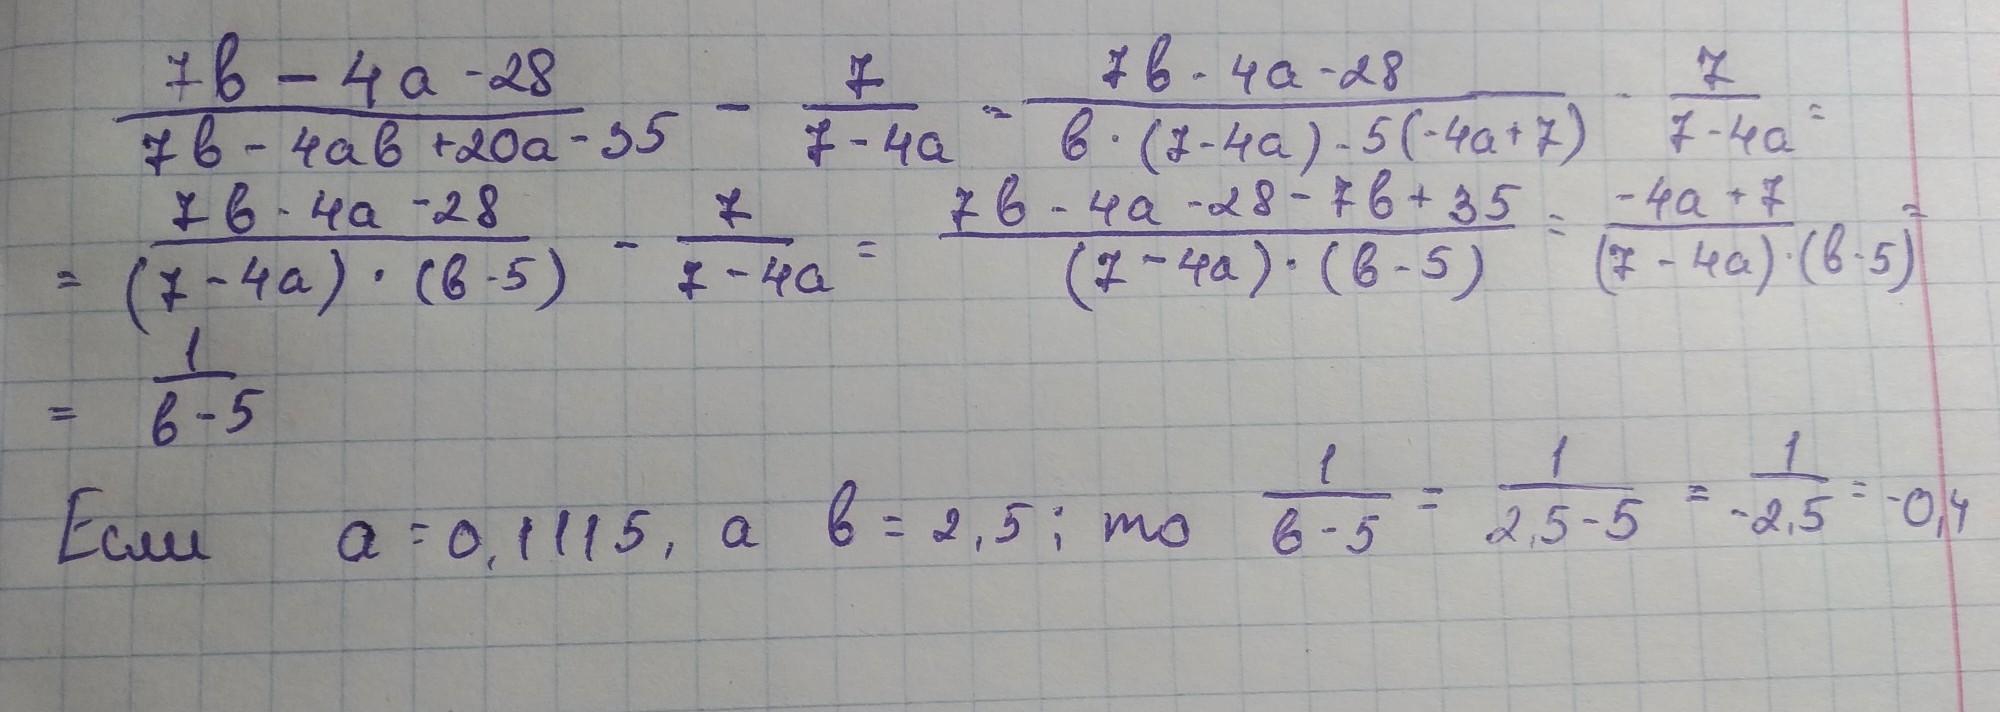 (7в - 4а - 28)/(7в - 4ав + 20а - 35) - 7/(7 - 4а) = (7в - 4а - 28)/(в · (7 - 4а) - 5(-4а + 7)) - 7/(7 - 4а) =
= (7в - 4а - 28)/((7 - 4а) · (в - 5)) - 7/(7 - 4а) = (7в - 4а - 28 - 7в + 35)/((7 - 4а) · (в - 5)) = (-4а + 7)/((7 - 4а) · (в - 5)) =
= 1/(в - 5)
Если а = 0,1115, а в = 2,5; то 1/(в - 5) = 1/(2,5 - 5) = 1/(-2,5) = -0,4